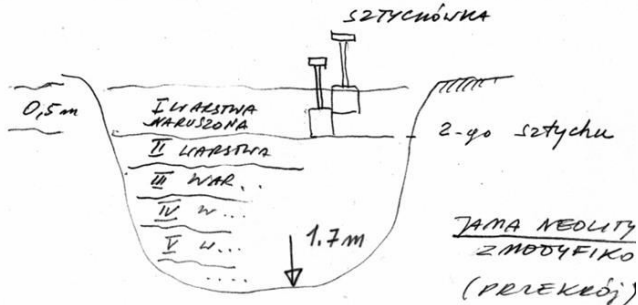 SZTYCHÓWKA
0,5m
I WARSTWA
NARUSZONA
2-go sztychu
II WARSTWA
III WAR..
IV W...
V W...
.....
1.7m
JAMA NEOLITY
ZMODYFIKO
(PRZEKRÓJ)